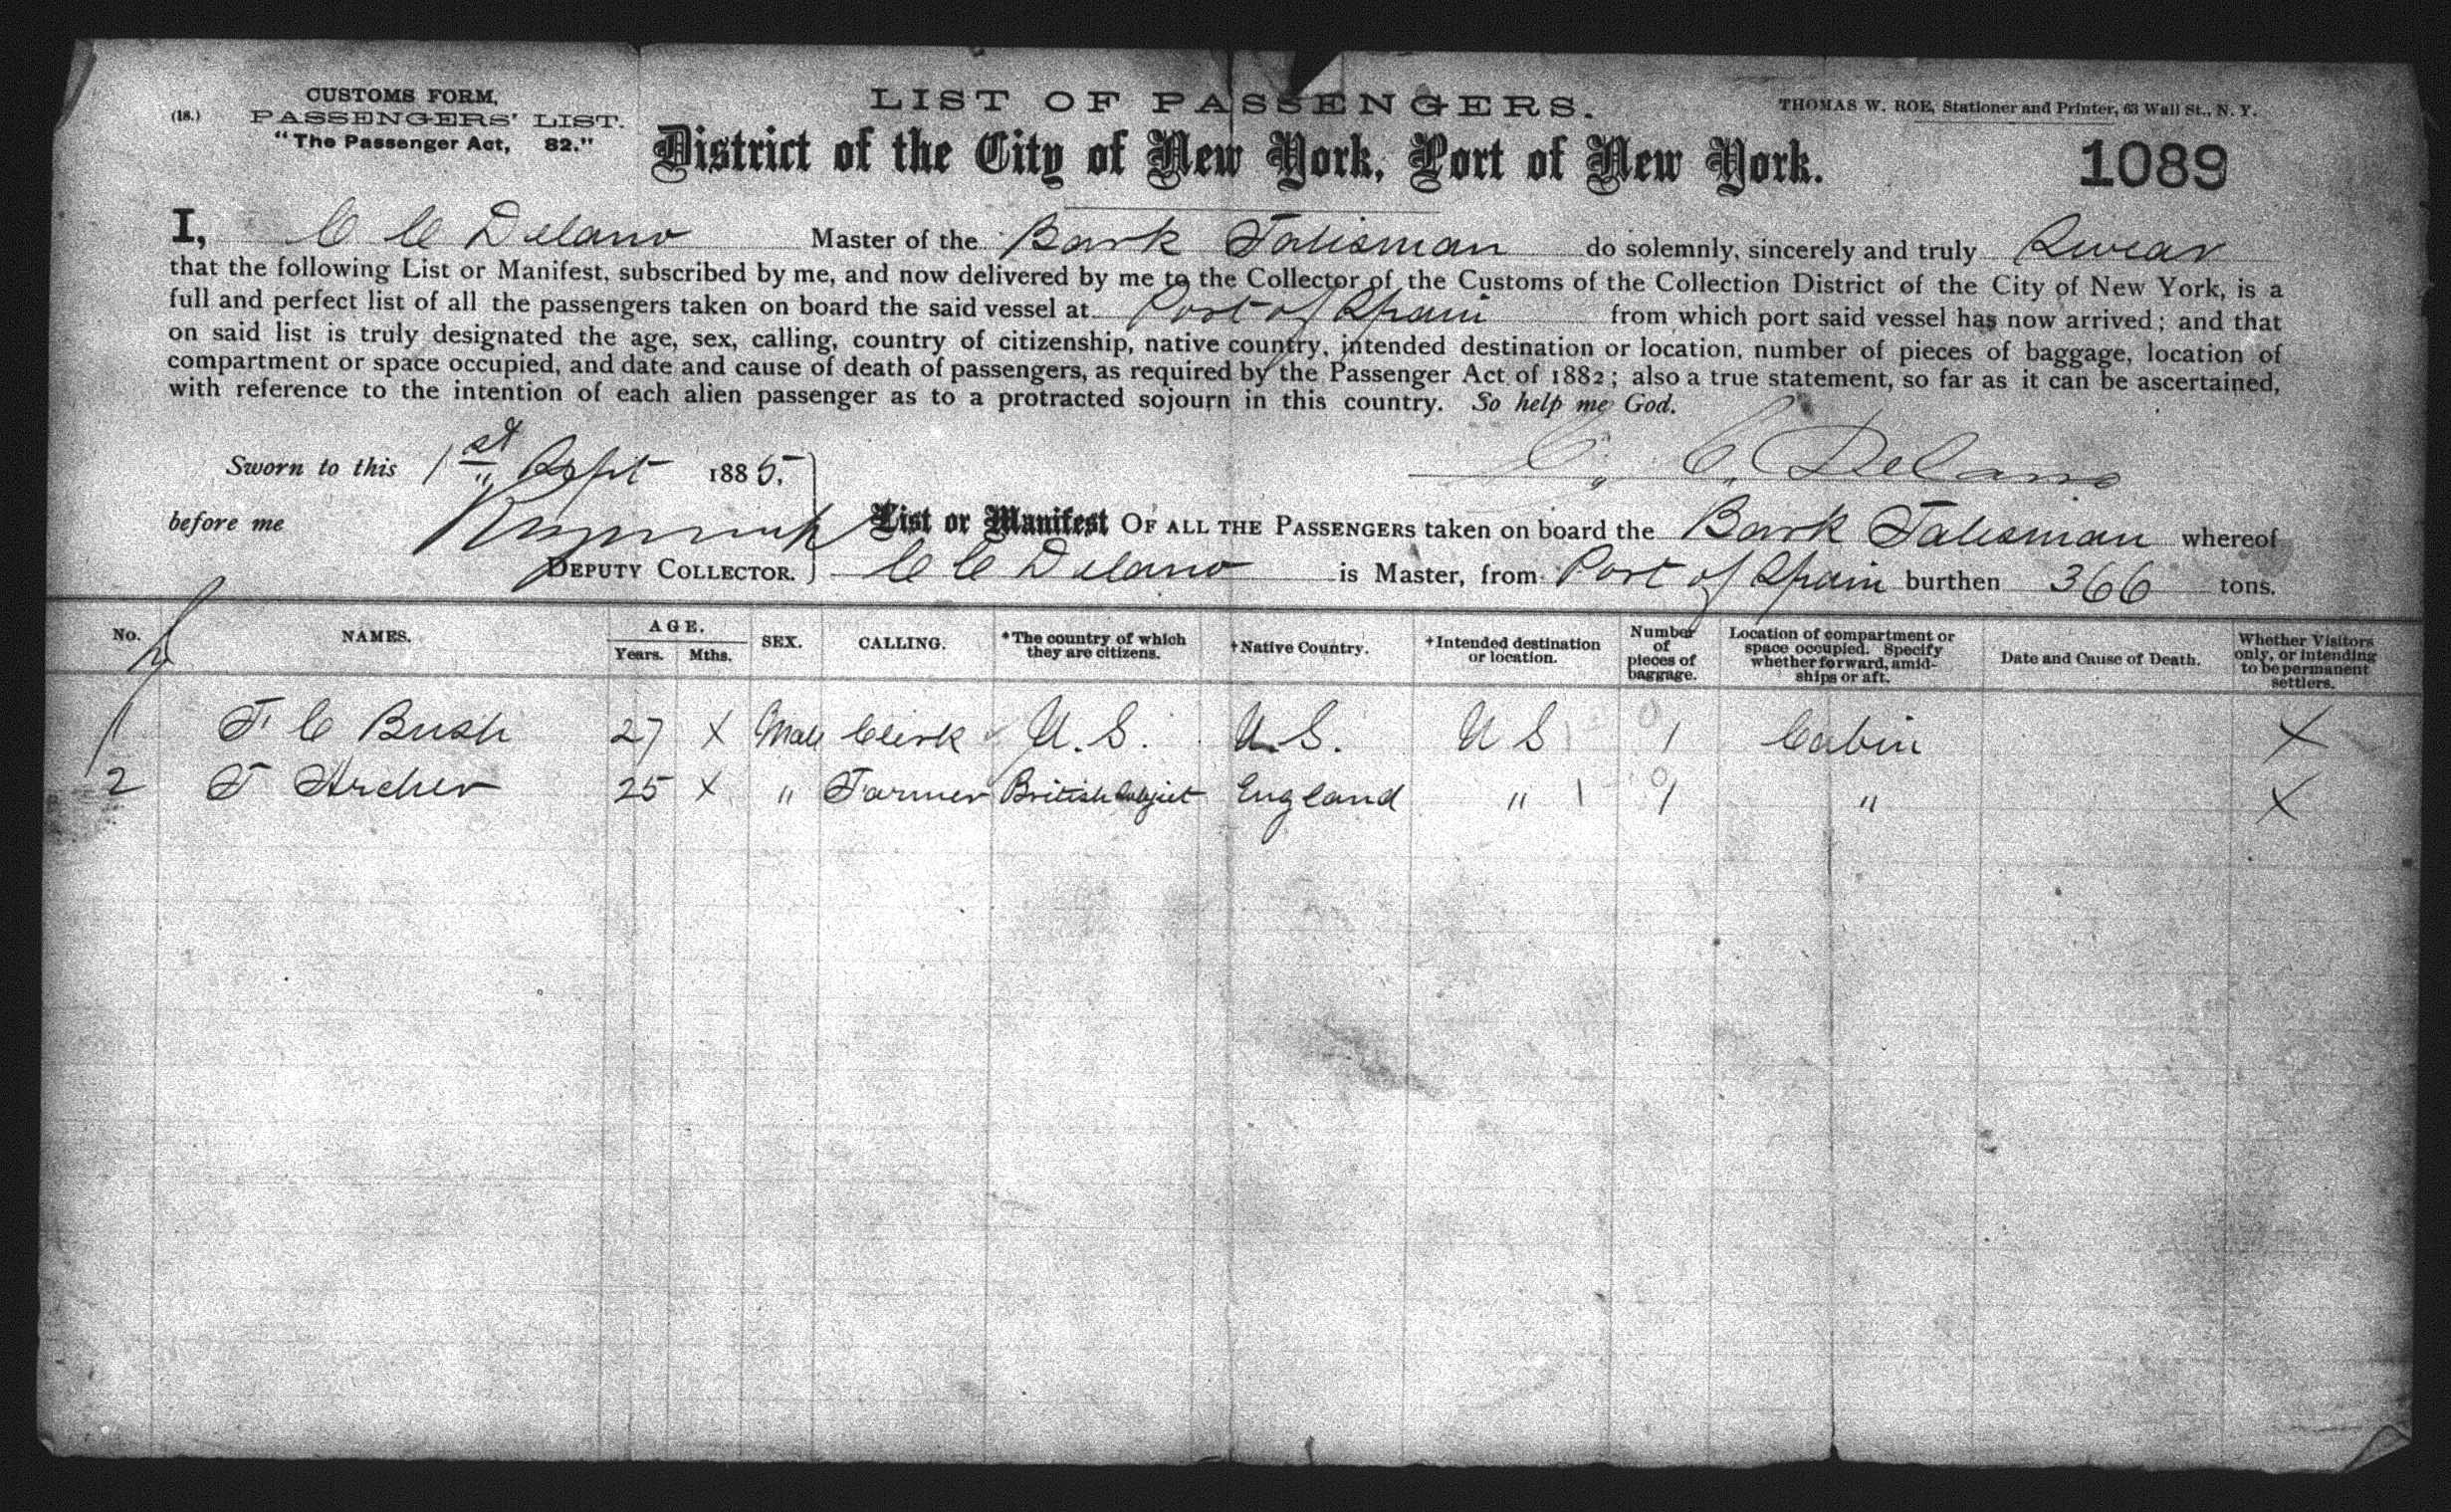 CUSTOMS FORM,
(18.) PASSENGERS' LIST.
"The Passenger Act, 82."
LIST OF PASSENGERS.
THOMAS W. ROE, Stationer and Printer, 63 Wall St., N. Y.
District of the City of New York, Port of New York.
1089
I, C C Delano Master of the Bark Talisman do solemnly, sincerely and truly Swear
that the following List or Manifest, subscribed by me, and now delivered by me to the Collector of the Customs of the Collection District of the City of New York, is a
full and perfect list of all the passengers taken on board the said vessel at Port of Spain from which port said vessel has now arrived; and that
on said list is truly designated the age, sex, calling, country of citizenship, native country, intended destination or location, number of pieces of baggage, location of
compartment or space occupied, and date and cause of death of passengers, as required by the Passenger Act of 1882; also a true statement, so far as it can be ascertained,
with reference to the intention of each alien passenger as to a protracted sojourn in this country. So help me God.
Sworn to this 1st Sept 1885.
C. C. Delano
before me
List or Manifest OF ALL THE PASSENGERS taken on board the Bark Talisman whereof
DEPUTY COLLECTOR. C C Delano is Master, from Port of Spain burthen 366 tons.
No. NAMES. AGE. Years. Mths. SEX. CALLING. *The country of which they are citizens. †Native Country. †Intended destination or location. Number of pieces of baggage. Location of compartment or space occupied. Specify whether forward, amidships or aft. Date and Cause of Death. Whether Visitors only, or intending to be permanent settlers.
1 F C Bush 27 X Male Clerk U.S. U.S. U S 1 Cabin X
2 F Archer 25 X " Farmer British Subject England " 1 " X